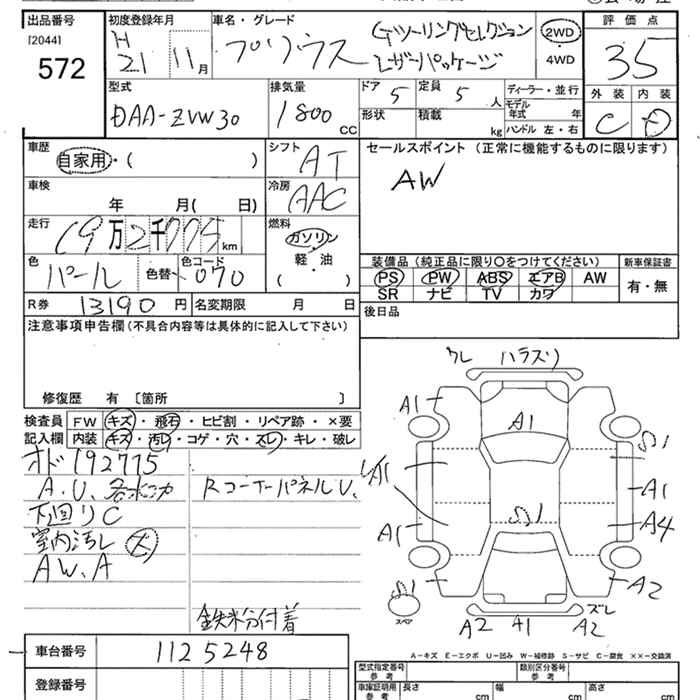 出品番号
[2044]
572
初度登録年月
H
21 11月
車名・グレード
プリウス
Gツーリングセレクション
レザーパッケージ
2WD
・
4WD
評価点
35
外装 内装
C D
型式
DAA-ZVW30
排気量
1800
CC
ドア 5
定員 5 人
ディーラー・並行
モデル
年式 年
形状
積載 kg
ハンドル 左・右
車歴
自家用・( )
シフト
AT
セールスポイント (正常に機能するものに限ります)
AW
車検
年 月( 日)
冷房
AAC
走行
19万2千775km
燃料
ガソリン
軽・油
( )
色
パール
色替
色コード
070
装備品(純正品に限り〇をつけてください)
PS PW ABS エアB AW
SR ナビ TV カワ
新車保証書
有・無
R券 13190 円
名変期限 月 日
後日品
注意事項申告欄(不具合内容等は具体的に記入して下さい)
修復歴 有 〔箇所 〕
検査員
記入欄
FW キズ・飛石・ヒビ割・リペア跡・×要
内装 キズ・汚レ・コゲ・穴・スレ・キレ・破レ
オド192775
A.U、各水シカ
下回りC
室内汚レ 大
AW.A
RコーナーパネルU、
鉄粉付着
ワレ ハラズリ
A1
A1
S1
A1
A1
A1
S1
A4
S1
スペア
A2
A2 A1 A2
ズレ
A-キズ E-エクボ U-凹み W-補修跡 S-サビ C-腐食 ××-交換済
車台番号
1125248
登録番号
型式指定番号
参考
類別区分番号
参考
車庫証明用
参考
長さ cm
幅 cm
高さ cm